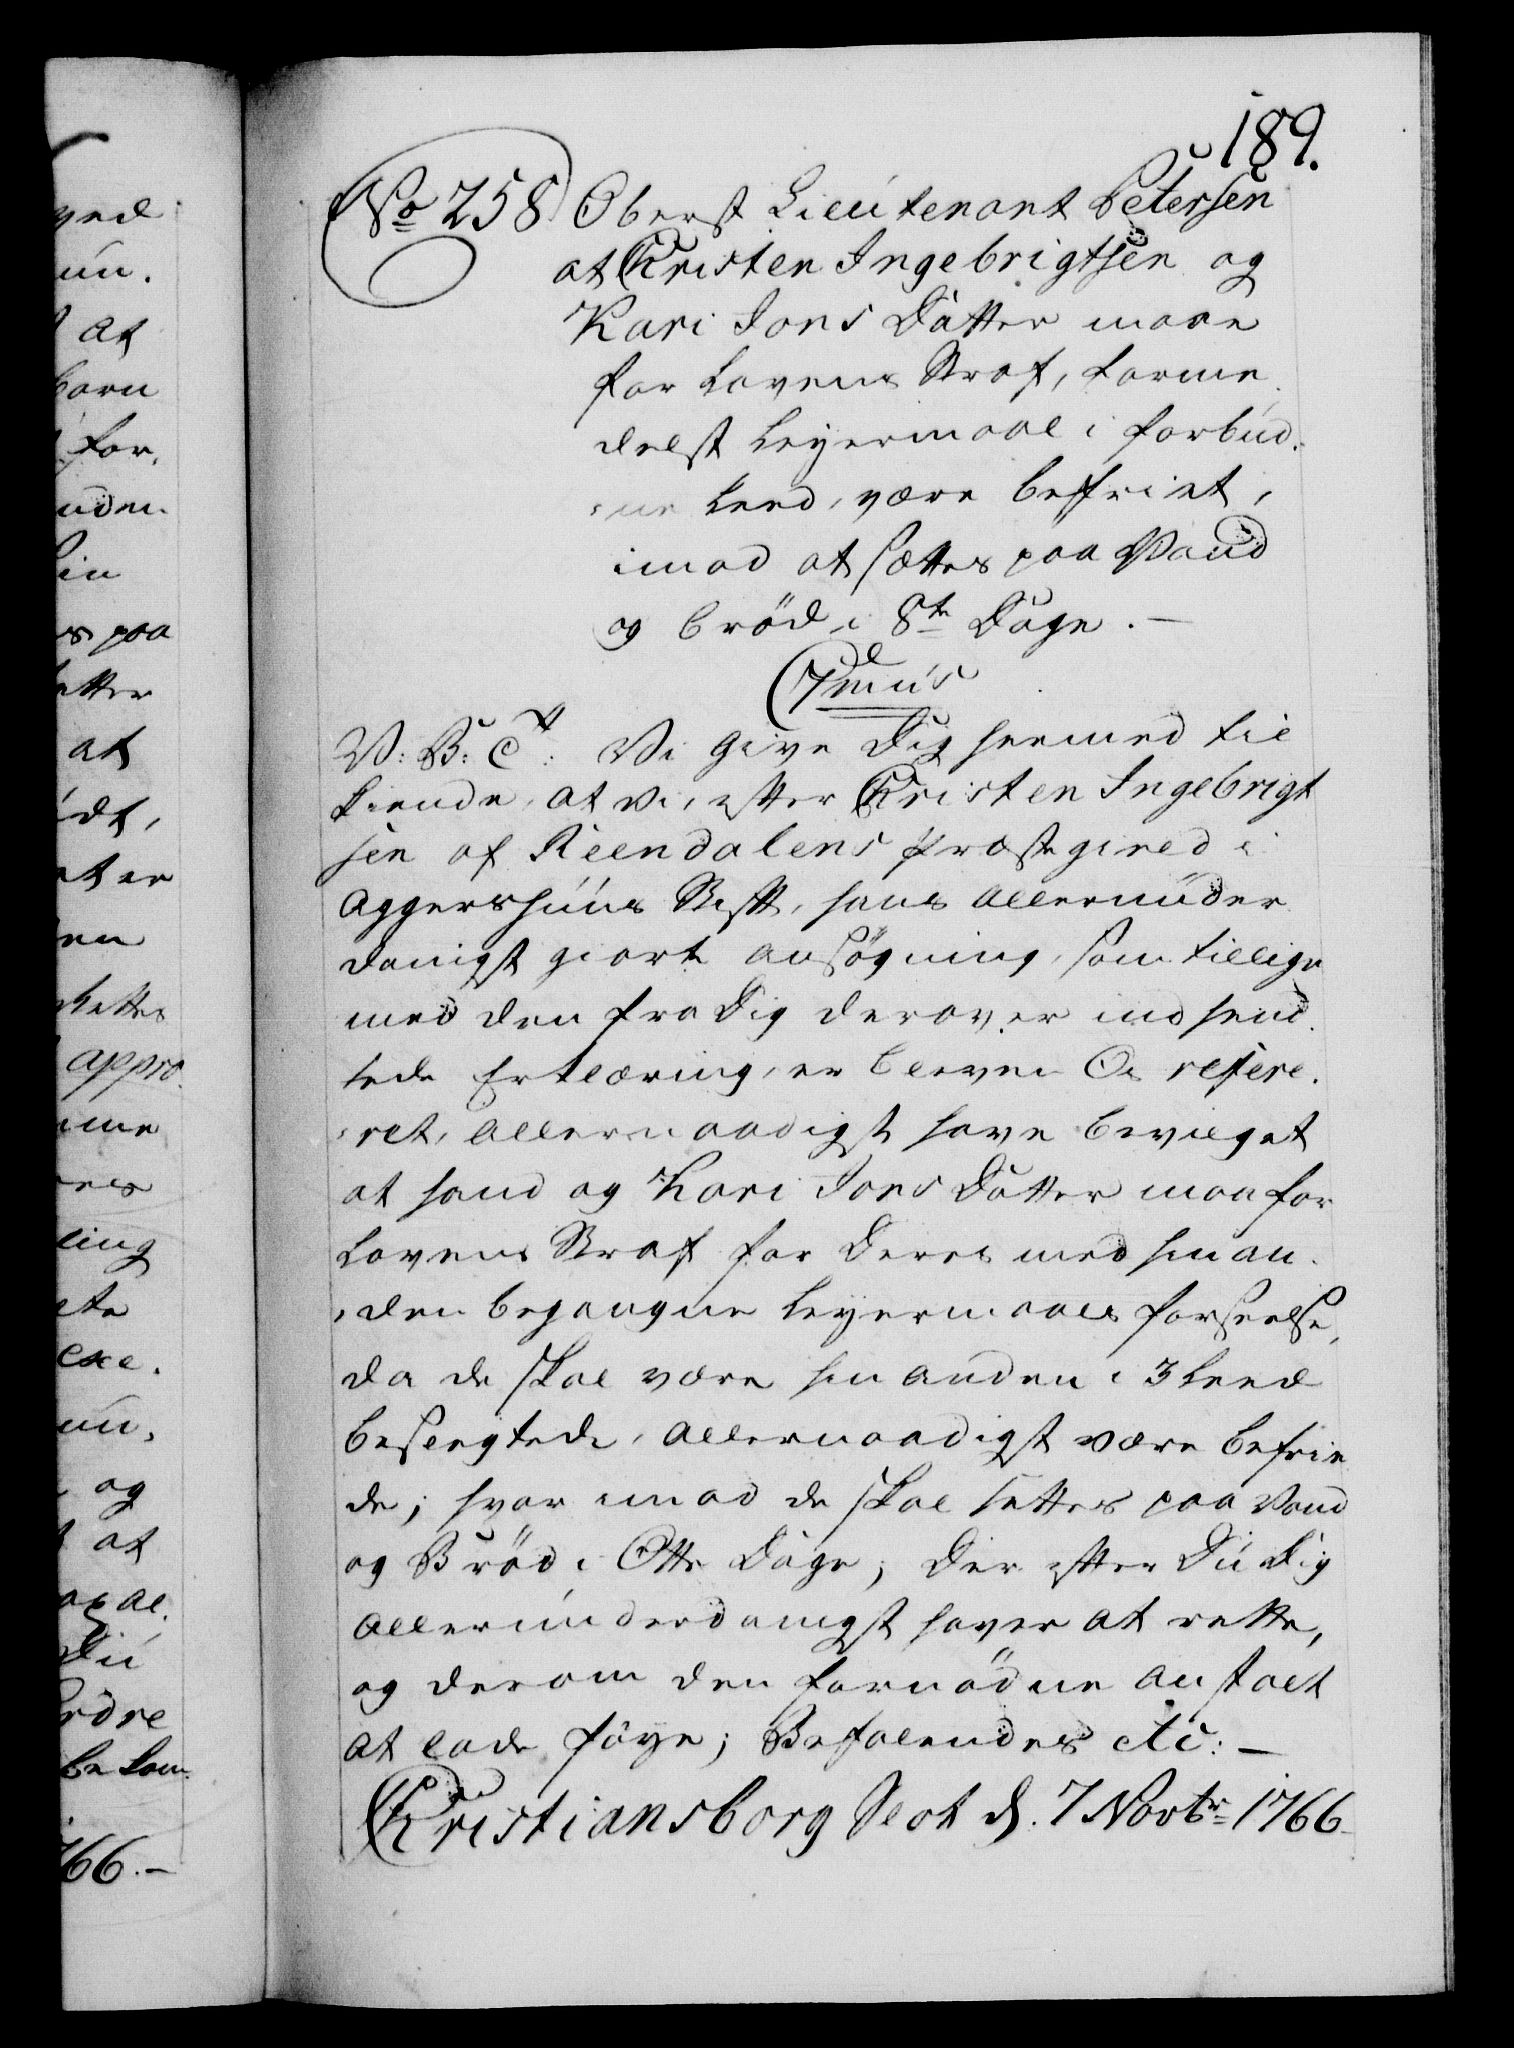 189.
No 258 Oberst Lieutenant Petersen
at Christen Ingebrigtsen og
Kari Jons Datter maae
for Lovens Straf, forme
delst Leyermaal i forbud:
:ne Leed, være befriet,
imod at sættes paa Vand
og Brød i 8te Dage. —
Cmus
V: B: C: Vi give Dig hermed til
kiende, at vi, efter Christen Ingebrigt
sen af Reendalens Præstegield i
Aggershuus Stift, hans allerunder
danigst giorte Ansøgning, som tillige
med den fra Dig derover indsend
tede Erklæring, er bleven Os refere.
:ret, allernaadigst have bevilget
at hand og Kari Jons Datter maa for
Lovens Straf for deres med hinan
:den begangne Leyermaals forseelse,
da de skal være hinanden i 3 Leed
beslegtede, allernaadigst være befrie
de; hvor imod de skal sættes paa Vand
og Brød i Otte Dage; Der efter Du Dig
allerunderdanigst haver at rette,
og derom den fornødne Anstalt
at lade føye; Befalendes etc: —
Christiansborg Slot d. 7 Novbr 1766
ved
un.
at
barn
for,
uden
paa
etter
at
ødt,
at er
en
appro
ling
og
at
Du
766. —